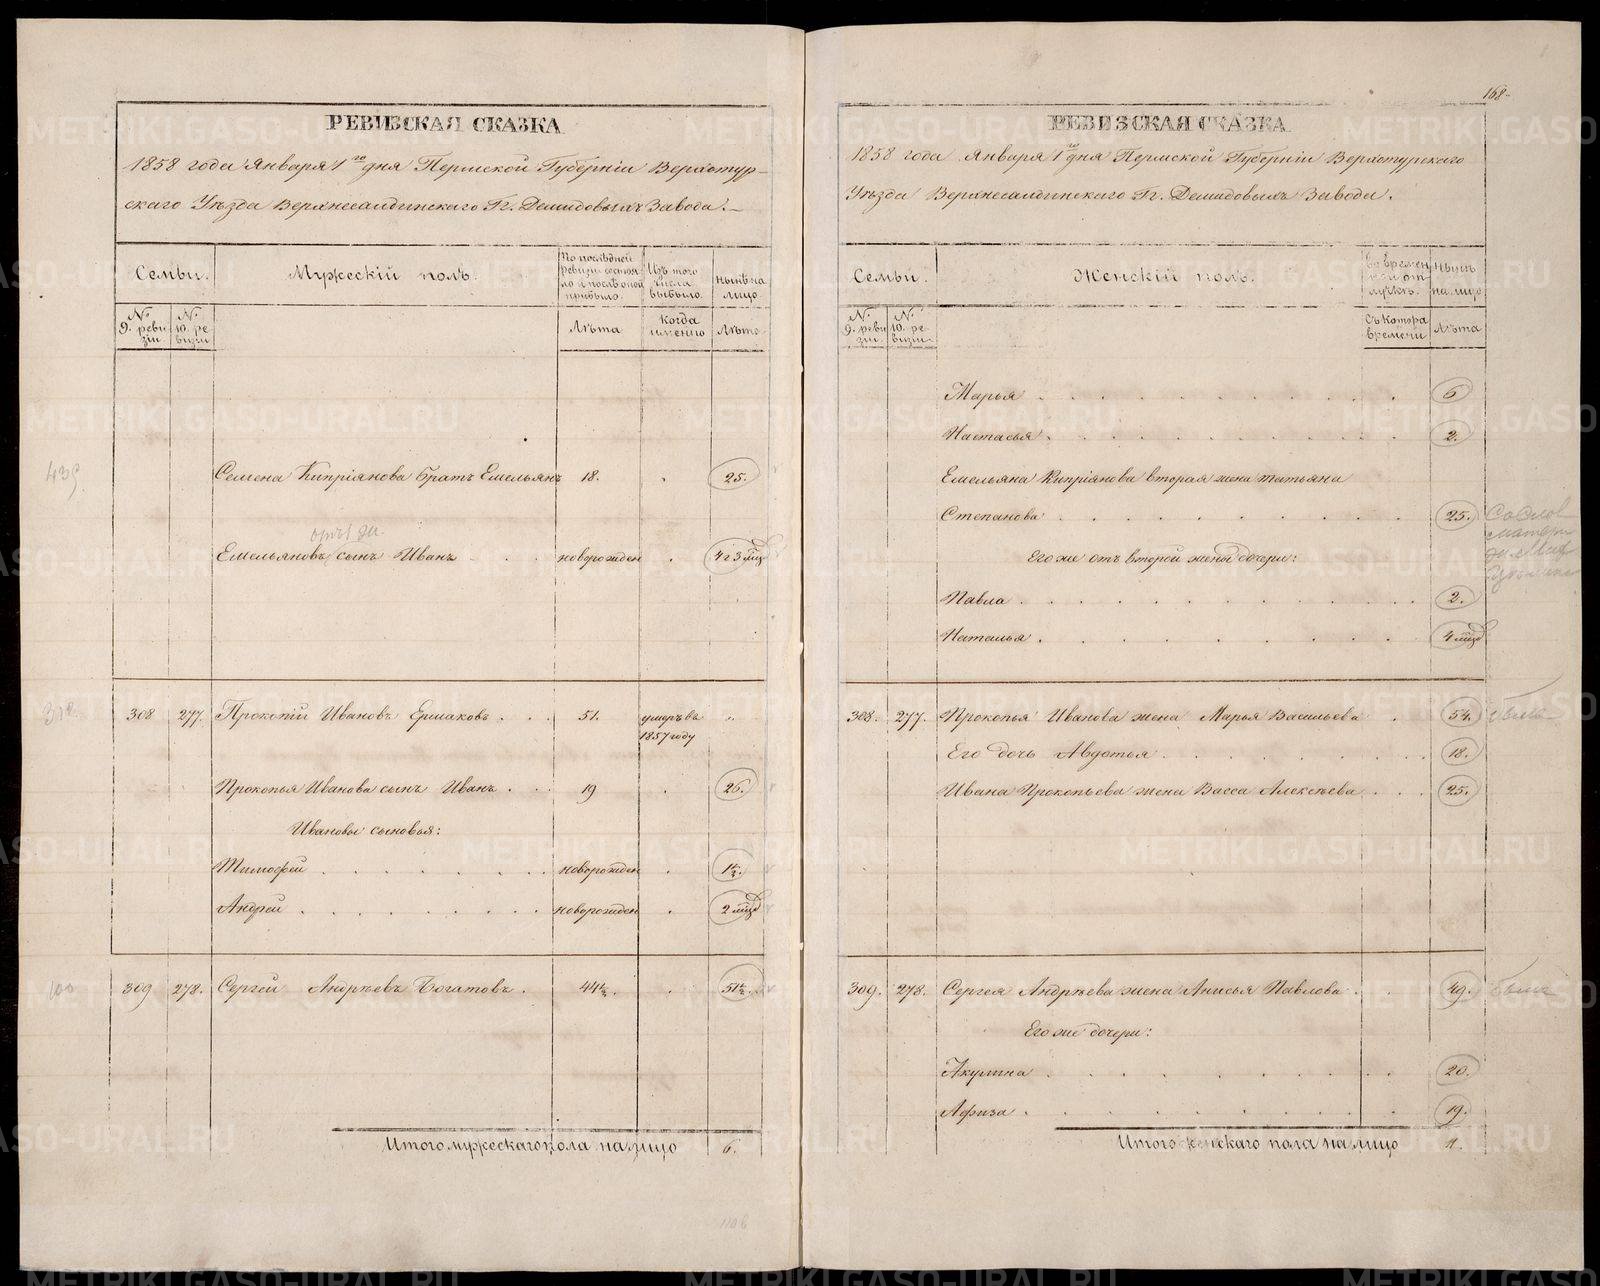 РЕВИЗСКАЯ СКАЗКА
1858 года Января 1го дня Пермской Губерніи Верхотур-
скаго Уѣзда Верхнесалдинскаго Гг. Демидовыхъ Завода.
Семьи.
Мужескій полъ.
По послѣдней ревизіи состояло и послѣ оной прибыло.
Изъ того числа выбыло.
Нынѣ на лицо.
№ 9. ревизіи
№ 10. ревизіи
Лѣта
Когда именно
Лѣта.
Семена Кипріянова братъ Емельянъ 18. 25.
Емельяновъ сынъ Иванъ новорожден 4 г 3 мѣс
308 277. Прокопій Ивановъ Ермаковъ 51. умеръ въ
1857 году
Прокопья Иванова сынъ Иванъ 19 26.
Ивановы сыновья:
Тимофей новорожден
Андрей новорожден 2 мѣс
309 278. Сергей Андрѣевъ Богатовъ. 44½. 51½.
Итого мужескаго пола на лицо 6.
168
РЕВИЗСКАЯ СКАЗКА
1858 года Января 1го дня Пермской Губерніи Верхотурскаго
Уѣзда Верхнесалдинскаго Гг. Демидовыхъ Завода.
Семьи.
Женскій полъ.
Во времен ной от лучкѣ.
Нынѣ на лицо
№ 9. ревизіи
№ 10. ревизіи
Съ котора времени
Лѣта
Марья 6
Настасья 2.
Емельяна Кипріянова вторая жена Татьяна
Степанова 25.
Его же отъ второй жены дочери:
Павла 2.
Наталья 4 мѣс
308. 277. Прокопья Иванова жена Марья Васильева 54.
Его дочь Авдотья 18.
Ивана Прокопьева жена Васса Алексѣева 25.
309. 278. Сергея Андрѣева жена Анисья Павлова 49.
Его же дочери:
Акулина 20.
Афиза 19.
Итого женскаго пола на лицо 11.
METRIKI.GASO-URAL.RU